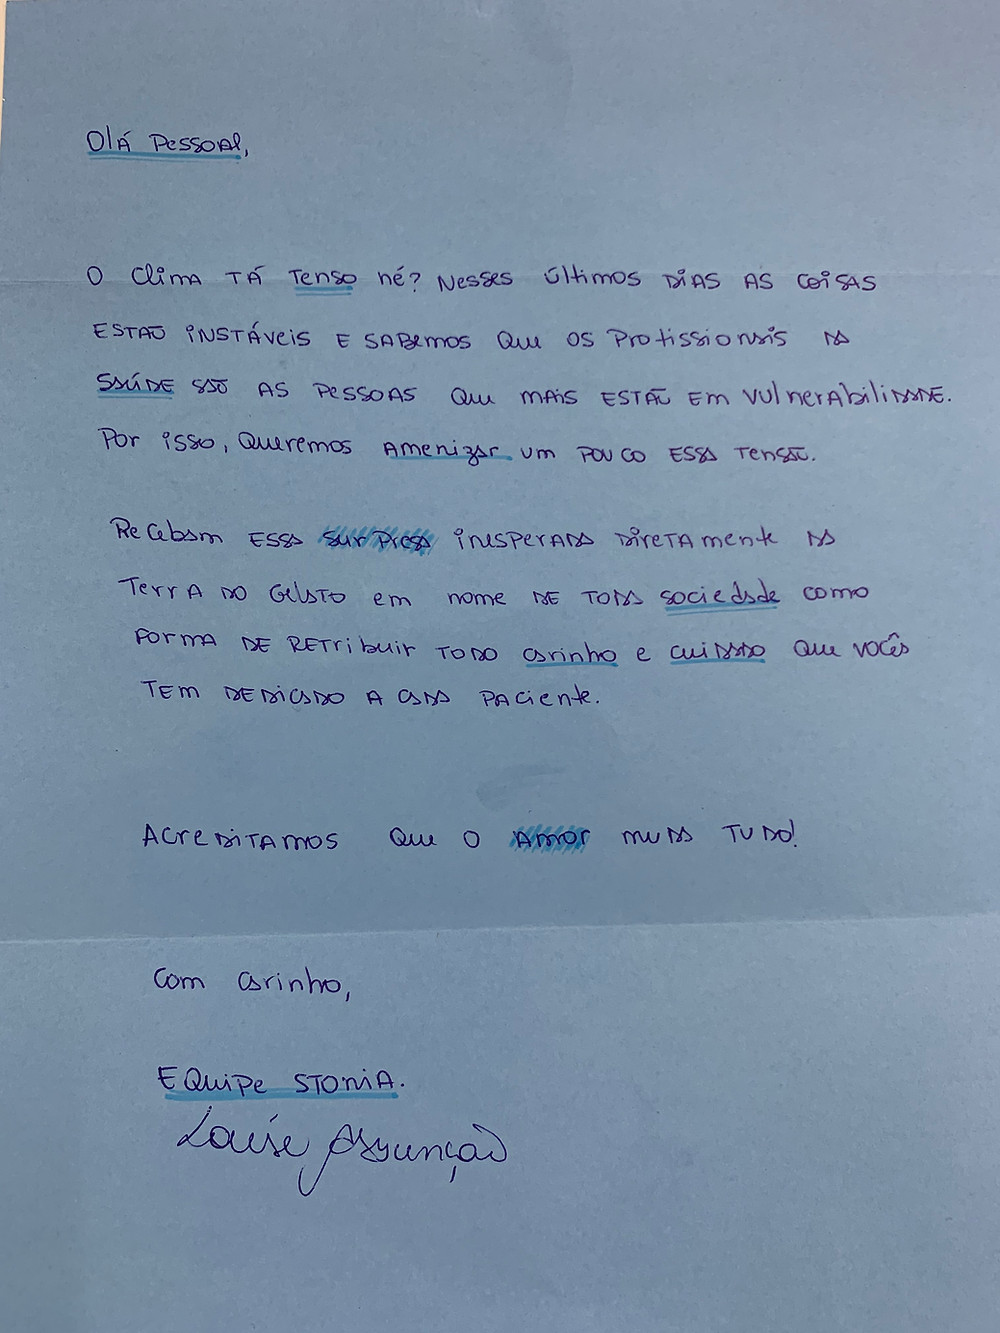 Olá Pessoal,
O clima tá tenso né? Nesses últimos dias as coisas
estão instáveis e sabemos que os profissionais da
saúde são as pessoas que mais estão em vulnerabilidade.
Por isso, queremos amenizar um pouco essa tensão.
Recebam essa surpresa inesperada diretamente da
terra do gelato em nome de toda sociedade como
forma de retribuir todo carinho e cuidado que vocês
tem dedicado a cada paciente.
Acreditamos que o amor muda tudo!
Com carinho,
Equipe Stonia.
Louise Assunção